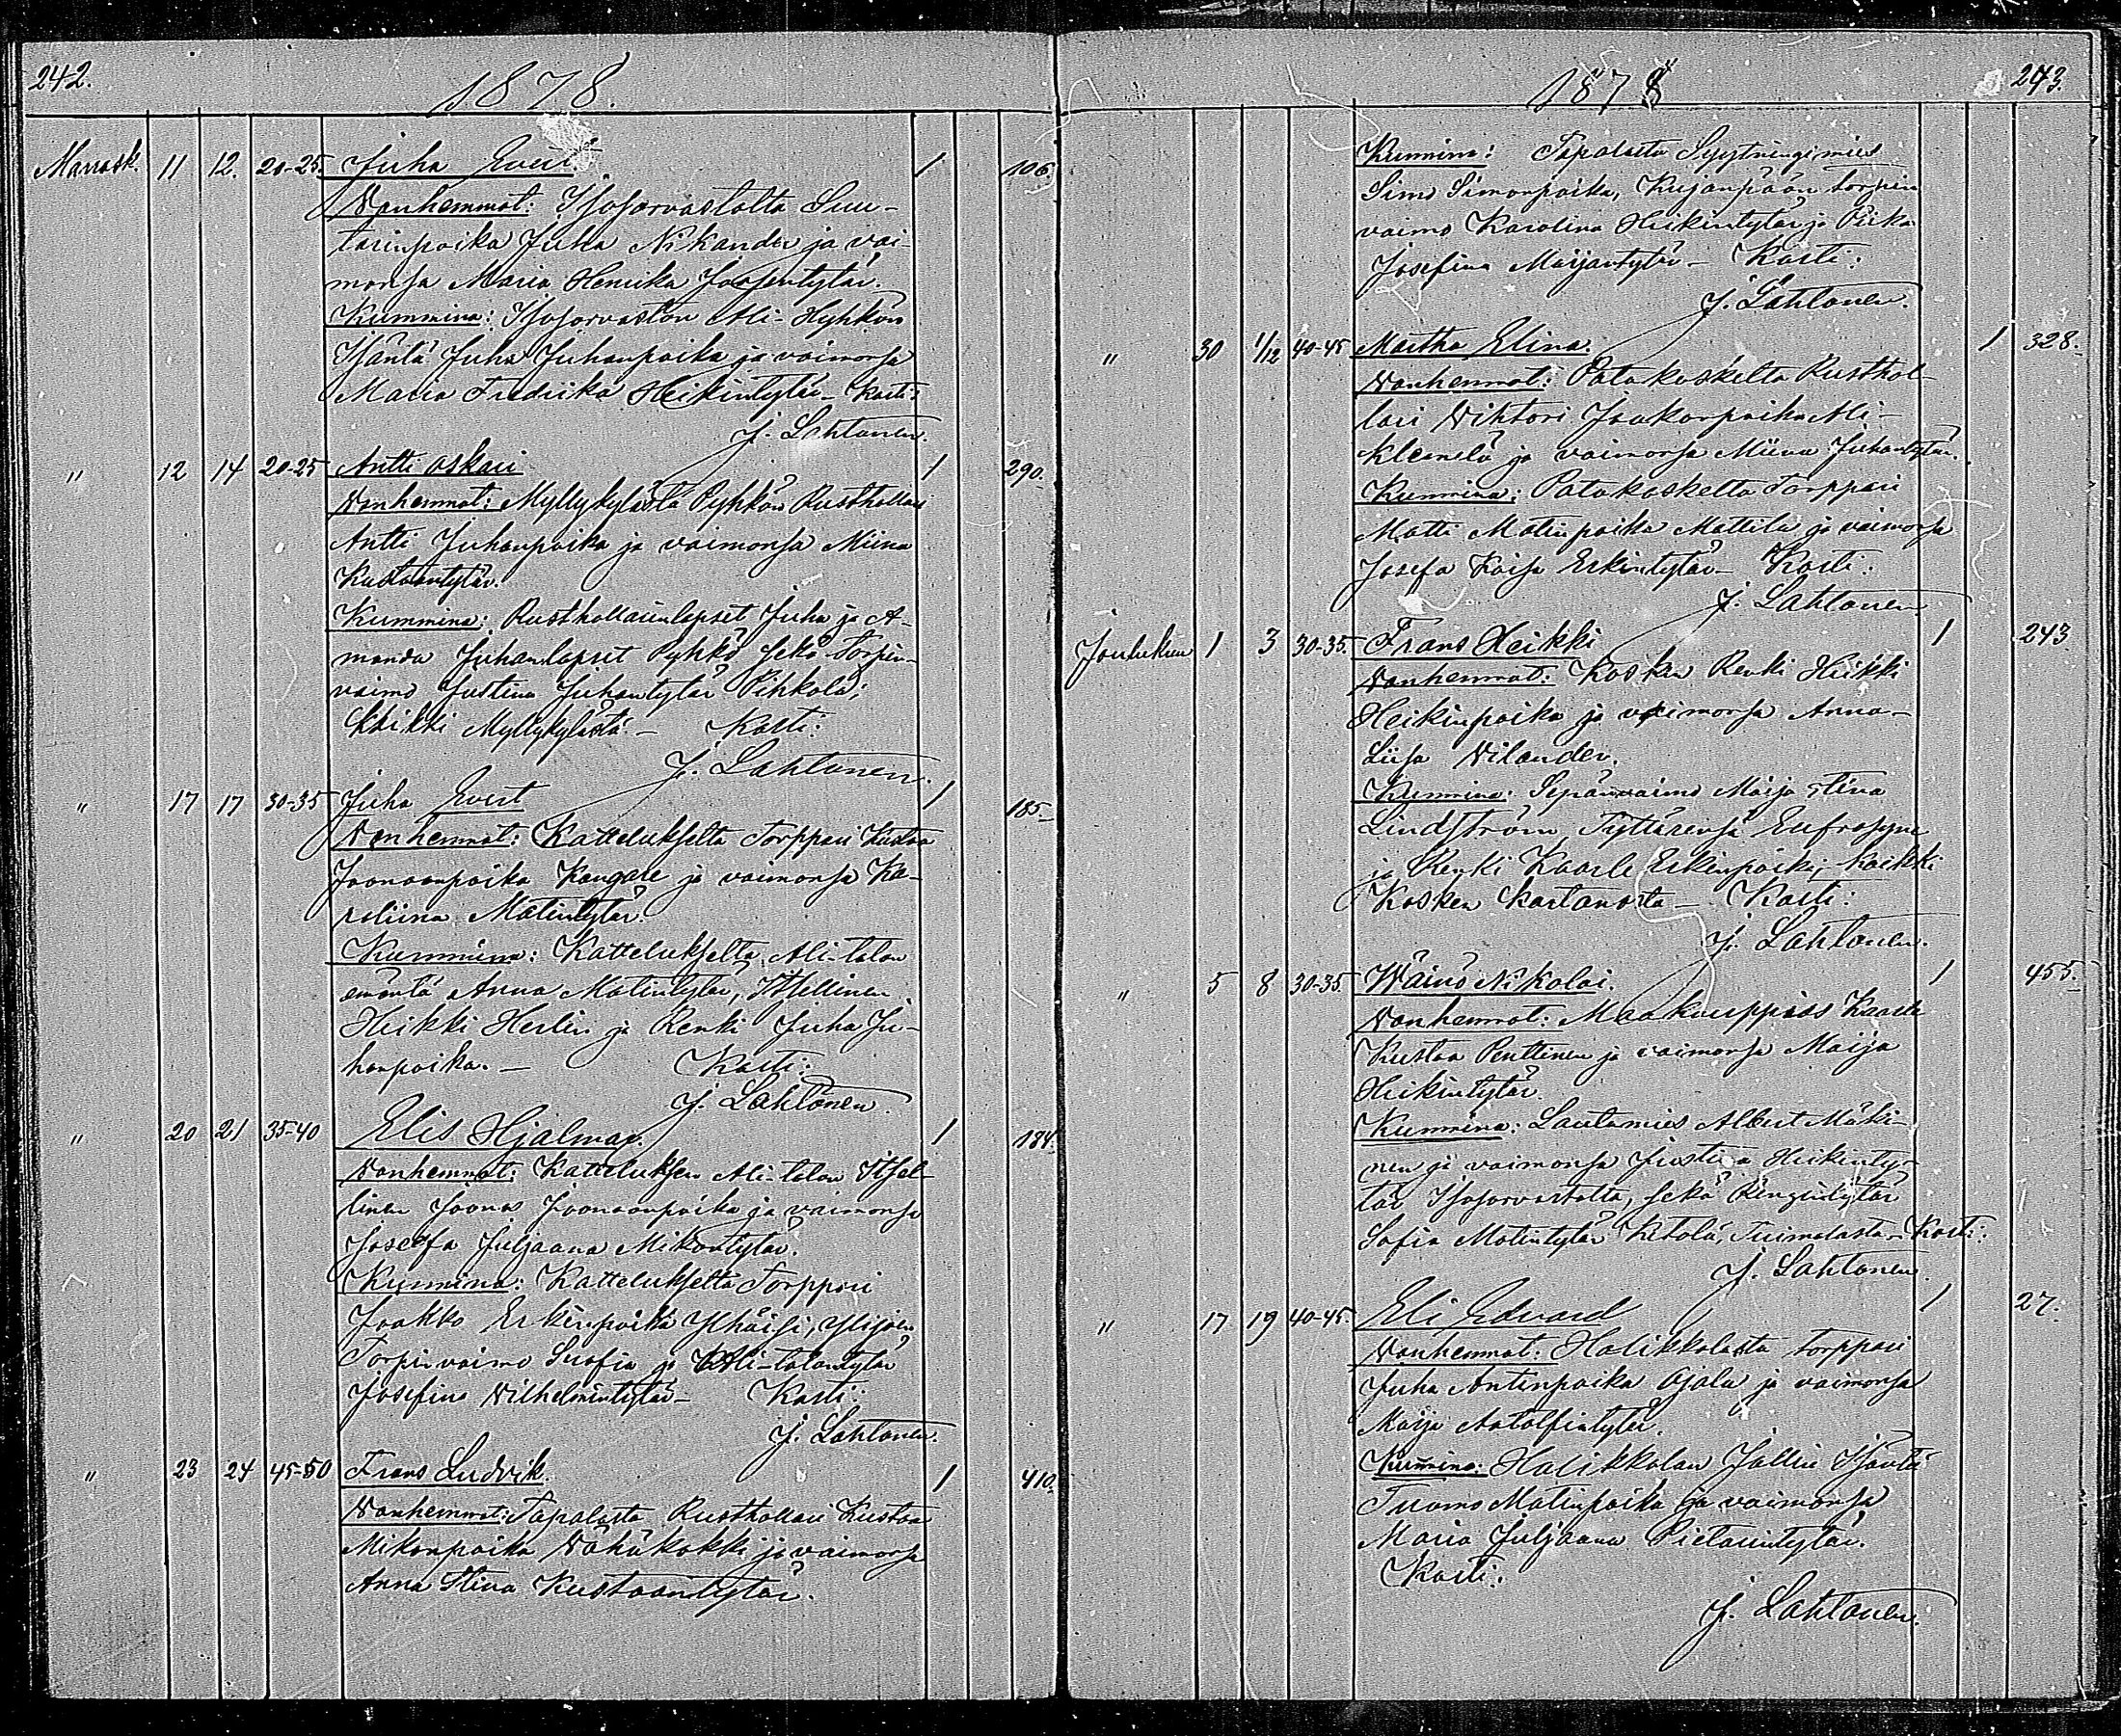 242.
1878.
Marrask. 11 12. 20-25. Juha Evert. 1 106.
Vanhemmat: Isosorvastolta Suu-
tarinpoika Juha Nikander ja vai-
monsa Maria Henrika Joosentytär.
Kummina: Isosorvaston Ali-Hyhkön
Isäntä Juha Juhanpoika ja vaimonsa
Maria Fredrika Heikintytär - Kasti:
J. Lahtonen.
" 12 14 20-25 Antti Oskari 1 290.
Vanhemmat: Myllykylästä Pyhkön Rusthollari
Antti Juhanpoika ja vaimonsa Miina
Kustaantytär.
Kummina: Rusthollarinlapset Juha ja A-
manda Juhanlapset Pyhkö sekä Torpin-
vaimo Justina Juhantytär Pihkola;
kaikki Myllykylästä. - Kasti:
J. Lahtonen.
" 17 17 30-35 Juha Evert 1 185.
Vanhemmat: Kattelukselta Torppari Kustaa
Joonaanpoika Kangare ja vaimonsa Ka-
roliina Matintytär.
Kummina: Kattelukselta Ali-talon
emäntä Anna Matintytär, Itsellinen
Heikki Herlin ja Renki Juha Ju-
hanpoika. - Kasti:
J. Lahtonen.
" 20 21 35-40 Elis Hjalmar. 1 184.
Vanhemmat: Katteluksen Ali-talon Itsel-
linen Joonas Joonaanpoika ja vaimonsa
Josefa Juljaana Mikontytär.
Kummina: Kattelukselta Torppari
Jaakko Erkinpoika Ylhäisi, Ylijoen
Torpin vaimo Suofia ja Ali-talontytär
Josefina Vilhelmintytär - Kasti:
J. Lahtonen.
" 23 24 45-50 Frans Ludvik. 1 410.
Vanhemmat: Tapalasta Rusthollari Kustaa
Mikonpoika Vähäkokki ja vaimonsa
Anna Stina Kustaantytär.
1878
243.
Kummina: Tapalasta Syytningimies
Simo Simonpoika, Kujanpään torpin
vaimo Karolina Heikintytär ja Piika
Josefina Maijantytär - Kasti:
J. Lahtonen.
" 30 1/12 40-45 Martha Elina. 1 328.
Vanhemmat: Patakoskelta Rusthol-
lari Vihtori Jaakonpoika Ali-
Kleemelä ja vaimonsa Miina Juhantytär.
Kummina: Patakoskelta Torppari
Matti Matinpoika Mattila ja vaimonsa
Josefa Kaisa Erkintytär - Kasti:
J. Lahtonen
Joulukuu 1 3 30-35. Frans Heikki 1 243
Vanhemmat: Kosken Renki Heikki
Heikinpoika ja vaimonsa Anna-
Liisa Vilander.
Kummina: Sepänvaimo Maija Stina
Lindström Tyttärensä Eufrosyne
ja Renki Kaarle Erkinpoika; kaikki
Kosken kartanosta - Kasti:
J. Lahtonen.
" 5 8 30-35. Wäinö Nikolai. 1 455.
Vanhemmat: Maakauppias Kaarle
Kustaa Penttinen ja vaimonsa Maija
Heikintytär.
Kummina: Lautamies Albert Mäki-
nen ja vaimonsa Justina Heikinty-
tär Isosorvastolta, sekä Renginty­tär
Sofia Matintytär Ketola, Tuimalasta - Kasti:
J. Lahtonen.
" 17 19 40-45. Eli Edvard 1 27.
Vanhemmat: Halikkolasta torppari
Juha Antinpoika Ojala ja vaimonsa
Maija Aatolfintytär.
Kummina: Halikkolan Jallin Isäntä
Tuomo Matinpoika ja vaimonsa
Maria Juljaana Pietarintytär.
Kasti:
J. Lahtonen.